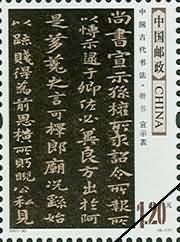 中国邮政
CHINA
中国古代书法·楷书 宣示表
尚書宣示孫權所求詔令所報所
以博示逮于卿佐必冀良方出於阿
是芻蕘之言可擇郎廟況繇始
以疏賤得為前恩橫所盻睨公私見
1.20元